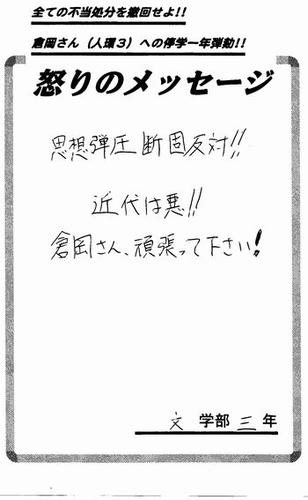 全ての不当処分を撤回せよ!!
倉岡さん（人環３）への停学一年弾劾!!
怒りのメッセージ
思想弾圧断固反対!!
近代は悪!!
倉岡さん、頑張って下さい!
文学部三年